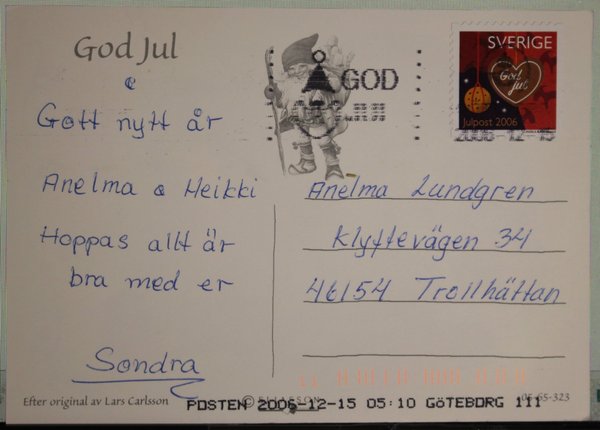 God Jul
&
Gott nytt år
Anelma & Heikki
Hoppas allt är
bra med er
Sondra
Efter original av Lars Carlsson
GOD
SVERIGE
God
jul
Julpost 2006
2006-12-15
Anelma Lundgren
Klyftevägen 34
46154 Trollhättan
05-65-323
POSTEN 2006-12-15 05:10 GÖTEBORG 111